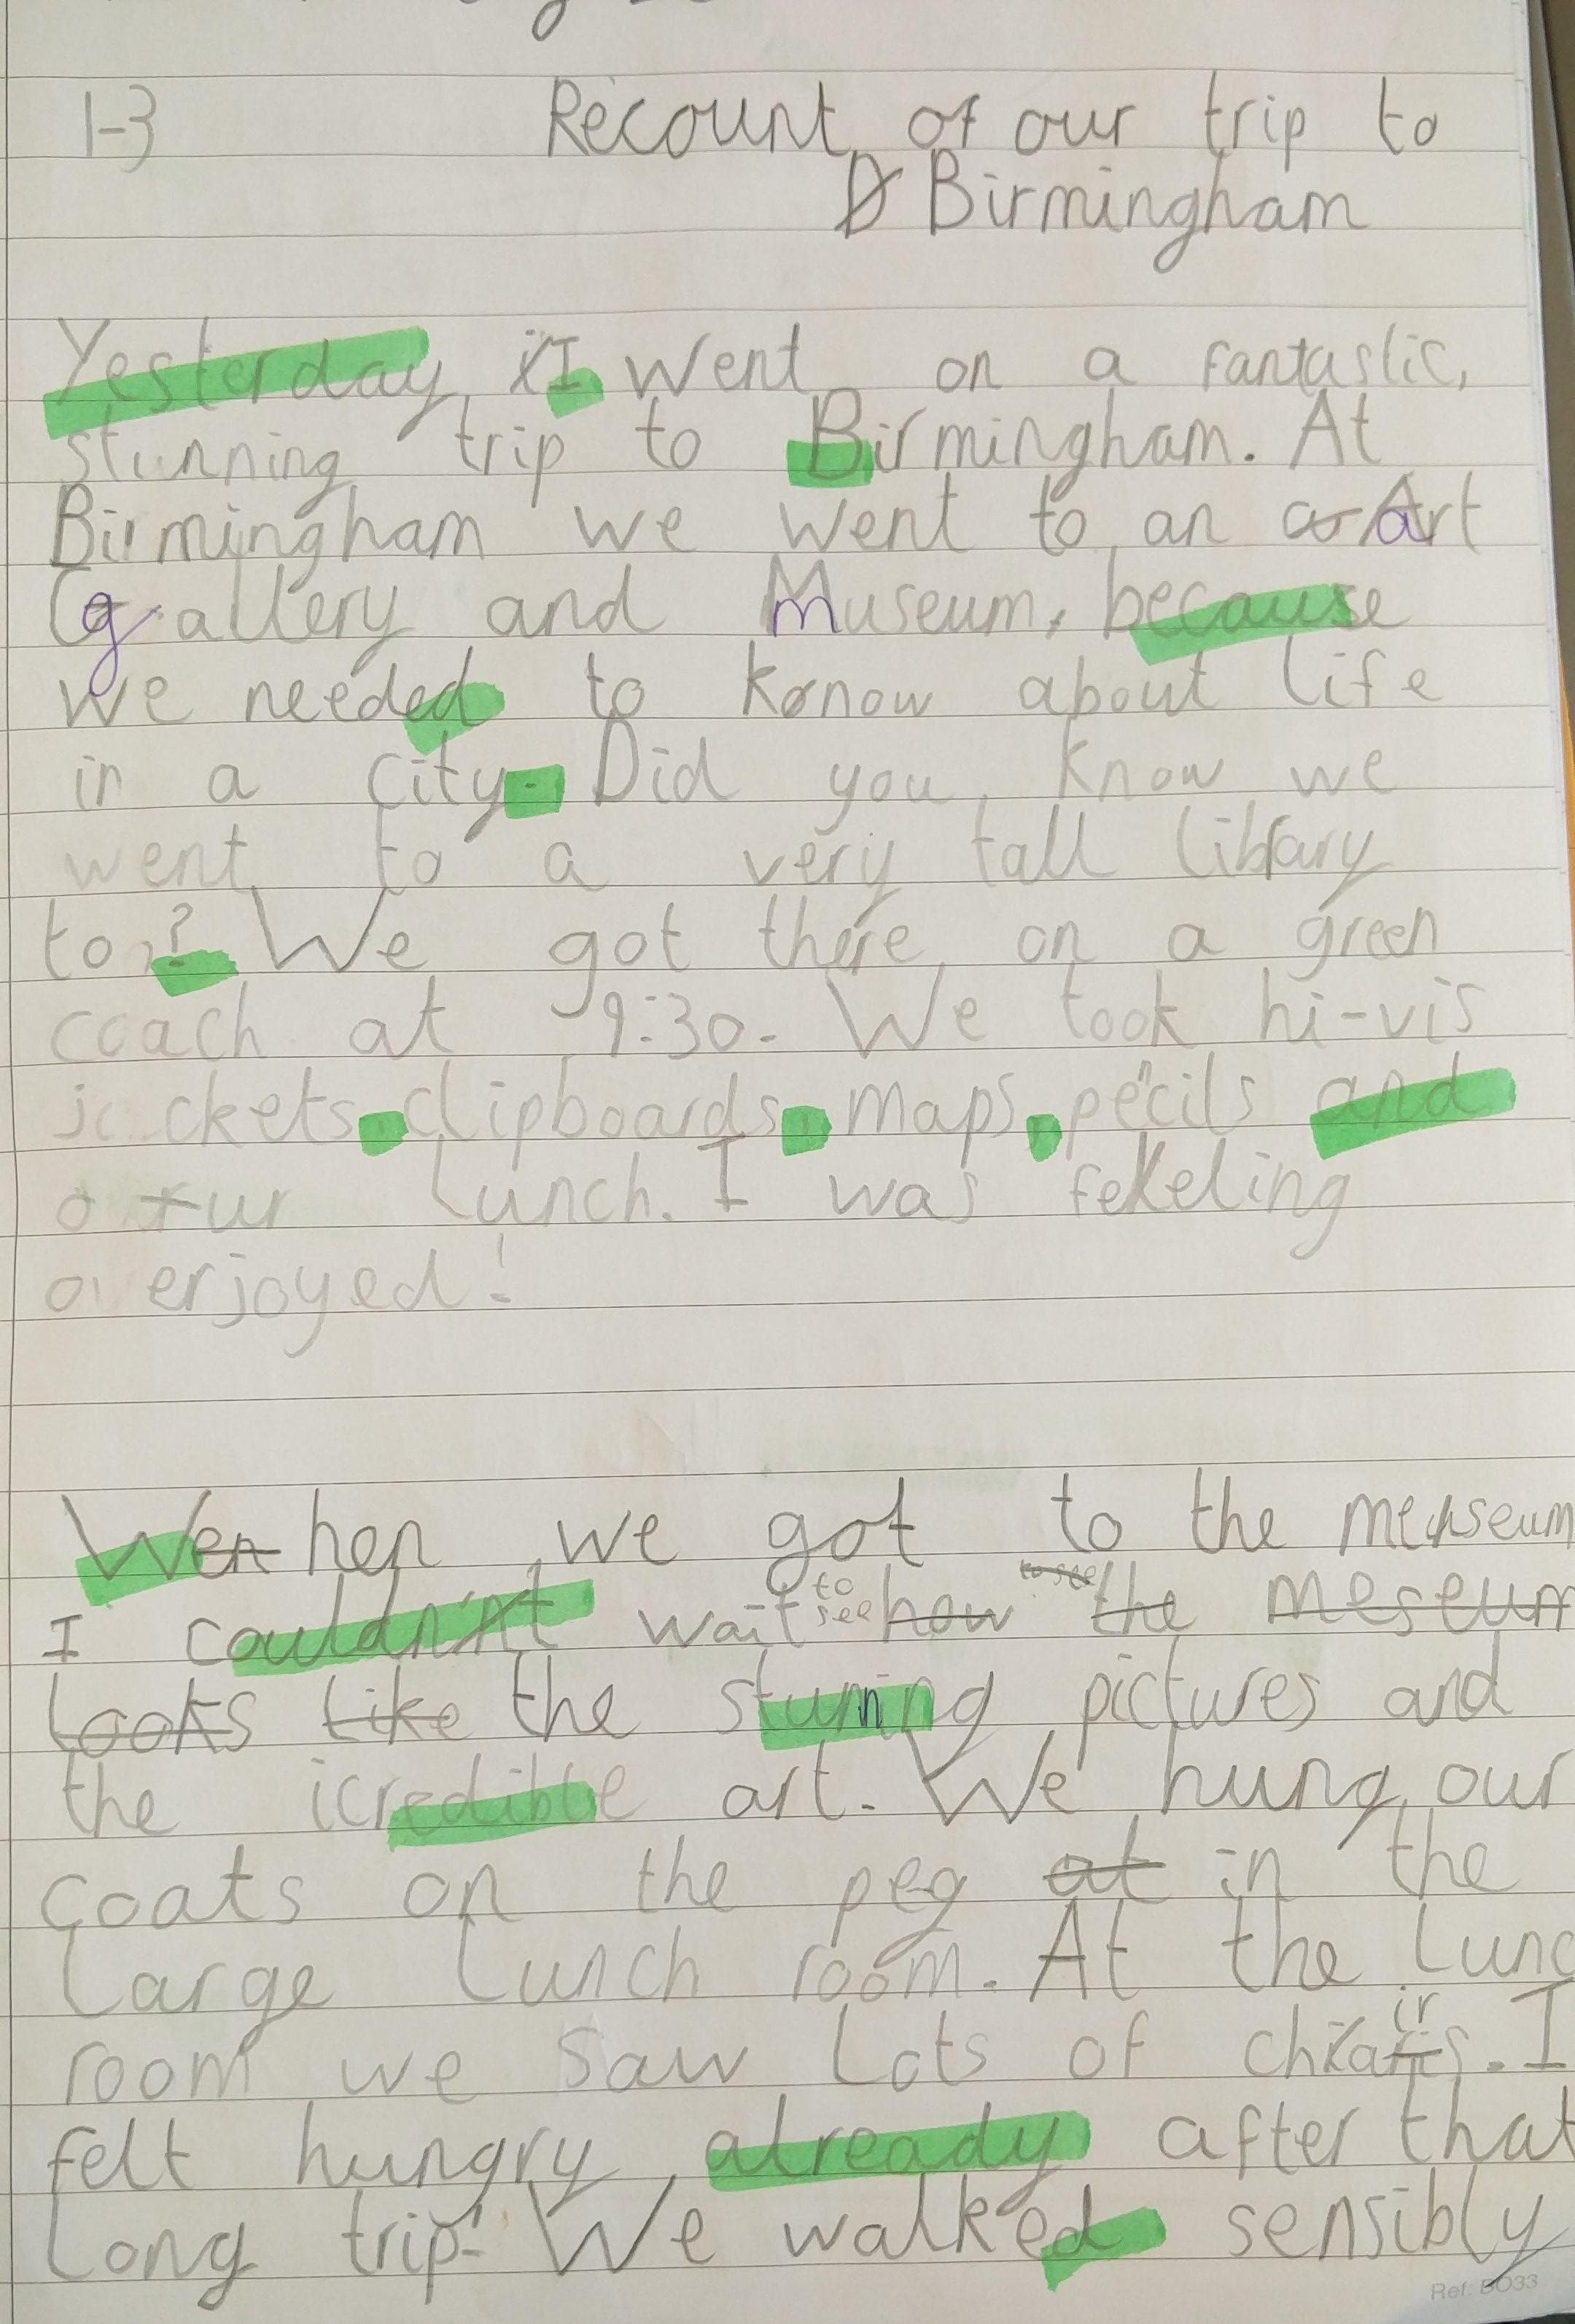 1-3 Recount of our trip to
Birmingham
Yesterday, I went on a fantastic,
stunning trip to Birmingham. At
Birmingham we went to an art
gallery and museum, because
we needed to know about life
in a city. Did you know we
went to a very tall library
to? We got there on a green
coach at 9:30. We took hi-vis
jackets, clipboards, maps, pencils and
our lunch. I was feeling
overjoyed!
When we got to the meuseum
I couldn't wait to see how to see the meseum
looks like the stunning pictures and
the icredible art. We hung our
coats on the peg at in the
large lunch room. At the lunc
room we saw lots of chairs. I
felt hungry already after that
long trip! We walked sensibly
Ref: BO33